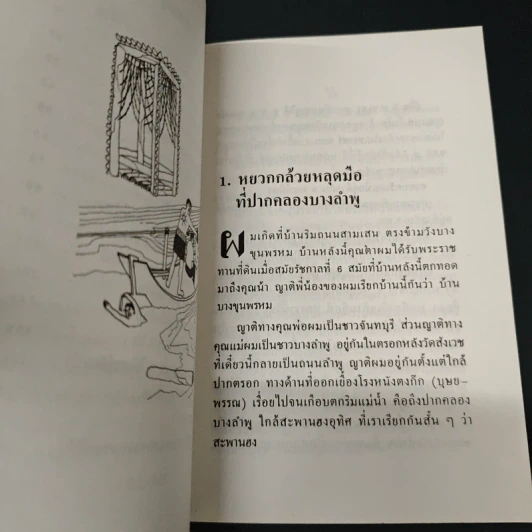 1. หยวกกล้วยหลุดมือ
ที่ปากคลองบางลำพู
ผมเกิดที่บ้านริมถนนสามเสน ตรงข้ามวังบาง
ขุนพรหม บ้านหลังนี้คุณตาผมได้รับพระราช
ทานที่ดินเมื่อสมัยรัชกาลที่ 6 สมัยที่บ้านหลังนี้ตกทอด
มาถึงคุณน้า ญาติพี่น้องของผมเรียกบ้านนี้กันว่า บ้าน
บางขุนพรหม
ญาติทางคุณพ่อผมเป็นชาวจันทบุรี ส่วนญาติทาง
คุณแม่ผมเป็นชาวบางลำพู อยู่กันในตรอกหลังวัดสังเวช
ที่เดี๋ยวนี้กลายเป็นถนนลำพู ญาติผมอยู่กันตั้งแต่ใกล้
ปากตรอก ทางด้านที่ออกเยื้องโรงหนังตงก๊ก (บุษย-
พรรณ) เรื่อยไปจนเกือบตกริมแม่น้ำ คือถึงปากคลอง
บางลำพู ใกล้สะพานฮงอุทิศ ที่เราเรียกกันสั้น ๆ ว่า
สะพานฮง